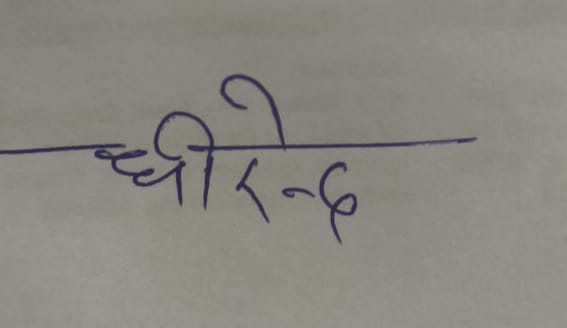 धीरेन्द